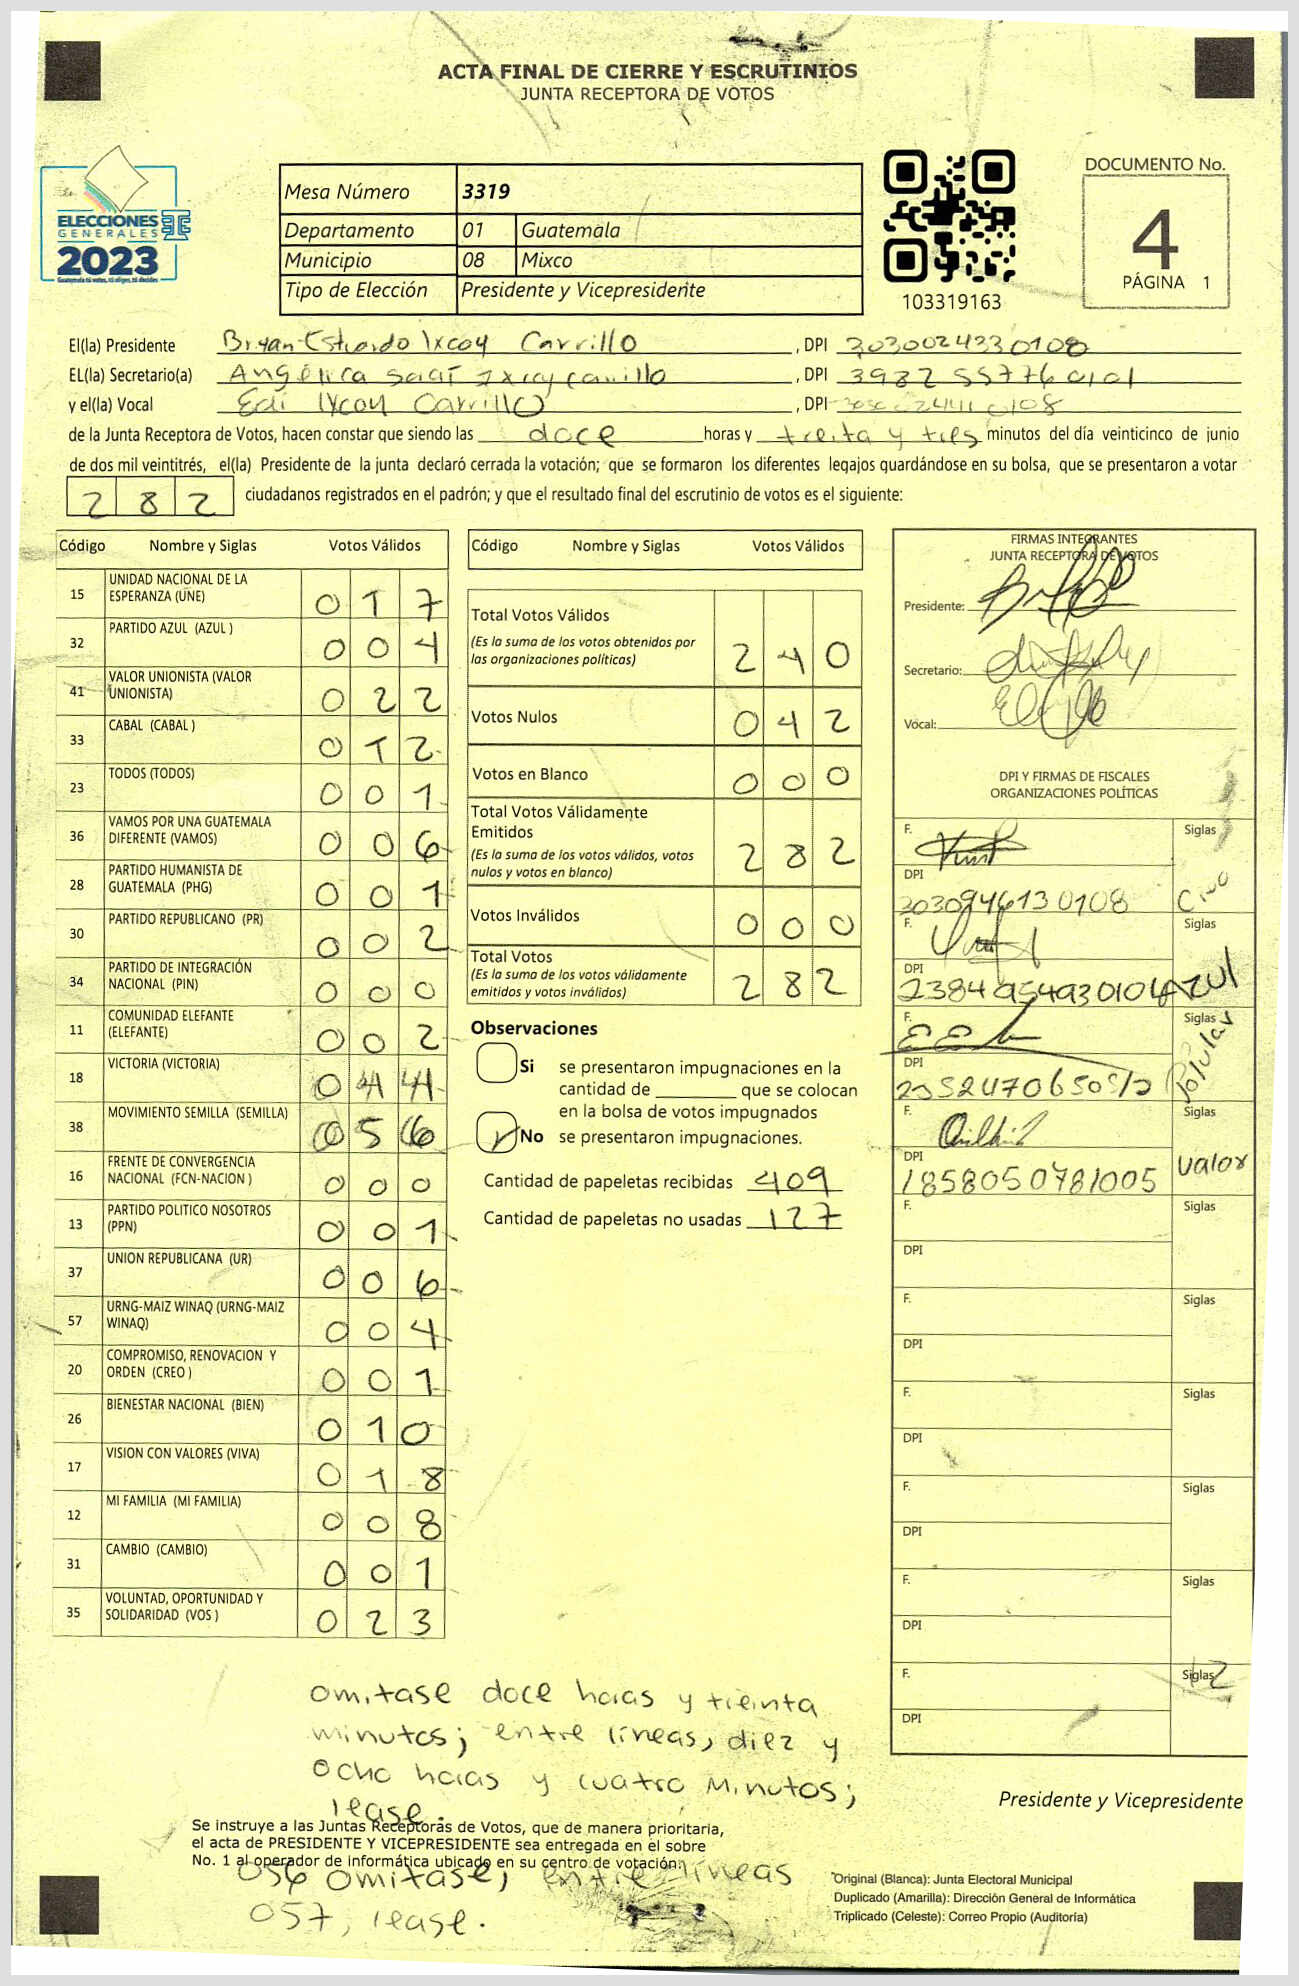 ACTA FINAL DE CIERRE Y ESCRUTINIOS
JUNTA RECEPTORA DE VOTOS
ELECCIONES
GENERALES
2023
Guatemala tú votas, tú eliges, tú decides
Mesa Número 3319
Departamento 01 Guatemala
Municipio 08 Mixco
Tipo de Elección Presidente y Vicepresidente
103319163
DOCUMENTO No.
4
PÁGINA 1
El(la) Presidente Bryan Estuardo Ixcoy Carrillo , DPI 3030024330108
EL(la) Secretario(a) Angélica Ixcoy Carrillo , DPI 3982 55776 0101
y el(la) Vocal Edi Ixcoy Carrillo , DPI 0108
de la Junta Receptora de Votos, hacen constar que siendo las doce horas y treita y tres minutos del día veinticinco de junio
de dos mil veintitrés, el(la) Presidente de la junta declaró cerrada la votación; que se formaron los diferentes legajos guardándose en su bolsa, que se presentaron a votar
282 ciudadanos registrados en el padrón; y que el resultado final del escrutinio de votos es el siguiente:
Código Nombre y Siglas Votos Válidos
15 UNIDAD NACIONAL DE LA
ESPERANZA (UNE) 017
32 PARTIDO AZUL (AZUL ) 004
41 VALOR UNIONISTA (VALOR
UNIONISTA) 022
33 CABAL (CABAL ) 012
23 TODOS (TODOS) 001
36 VAMOS POR UNA GUATEMALA
DIFERENTE (VAMOS) 006
28 PARTIDO HUMANISTA DE
GUATEMALA (PHG) 001
30 PARTIDO REPUBLICANO (PR) 002
34 PARTIDO DE INTEGRACIÓN
NACIONAL (PIN) 000
11 COMUNIDAD ELEFANTE
(ELEFANTE) 002
18 VICTORIA (VICTORIA) 044
38 MOVIMIENTO SEMILLA (SEMILLA) 056
16 FRENTE DE CONVERGENCIA
NACIONAL (FCN-NACION ) 000
13 PARTIDO POLITICO NOSOTROS
(PPN) 001
37 UNION REPUBLICANA (UR) 006
57 URNG-MAIZ WINAQ (URNG-MAIZ
WINAQ) 004
20 COMPROMISO, RENOVACION Y
ORDEN (CREO ) 001
26 BIENESTAR NACIONAL (BIEN) 010
17 VISION CON VALORES (VIVA) 018
12 MI FAMILIA (MI FAMILIA) 008
31 CAMBIO (CAMBIO) 001
35 VOLUNTAD, OPORTUNIDAD Y
SOLIDARIDAD (VOS ) 023
Código Nombre y Siglas Votos Válidos
Total Votos Válidos
(Es la suma de los votos obtenidos por
las organizaciones políticas) 240
Votos Nulos 042
Votos en Blanco 000
Total Votos Válidamente
Emitidos
(Es la suma de los votos válidos, votos
nulos y votos en blanco) 282
Votos Inválidos 000
Total Votos
(Es la suma de los votos válidamente
emitidos y votos inválidos) 282
Observaciones
Si se presentaron impugnaciones en la
cantidad de ________ que se colocan
en la bolsa de votos impugnados
No se presentaron impugnaciones.
Cantidad de papeletas recibidas 409
Cantidad de papeletas no usadas 127
FIRMAS INTEGRANTES
JUNTA RECEPTORA DE VOTOS
Presidente:
Secretario:
Vocal:
DPI Y FIRMAS DE FISCALES
ORGANIZACIONES POLÍTICAS
F. Siglas
DPI
3030946130108
F. Siglas
DPI
2384954930104 AZUL
F. Siglas
DPI
F. Siglas
DPI Valor
1858050781005
F. Siglas
DPI
F. Siglas
DPI
F. Siglas
DPI
F. Siglas
DPI
F. Siglas
DPI
F. Siglas
DPI
omitase doce horas y treinta
minutos; entre líneas, diez y
ocho horas y cuatro minutos;
lease.
Se instruye a las Juntas Receptoras de Votos, que de manera prioritaria,
el acta de PRESIDENTE Y VICEPRESIDENTE sea entregada en el sobre
No. 1 al operador de informática ubicado en su centro de votación.
056 omitase, entre líneas
057, lease.
Presidente y Vicepresidente
Original (Blanca): Junta Electoral Municipal
Duplicado (Amarilla): Dirección General de Informática
Triplicado (Celeste): Correo Propio (Auditoría)